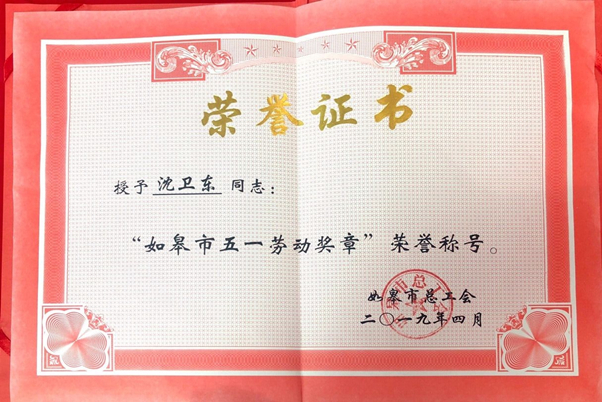 荣誉证书
授予 沈卫东 同志：
“如皋市五一劳动奖章”荣誉称号。
如皋市总工会
二〇一九年四月